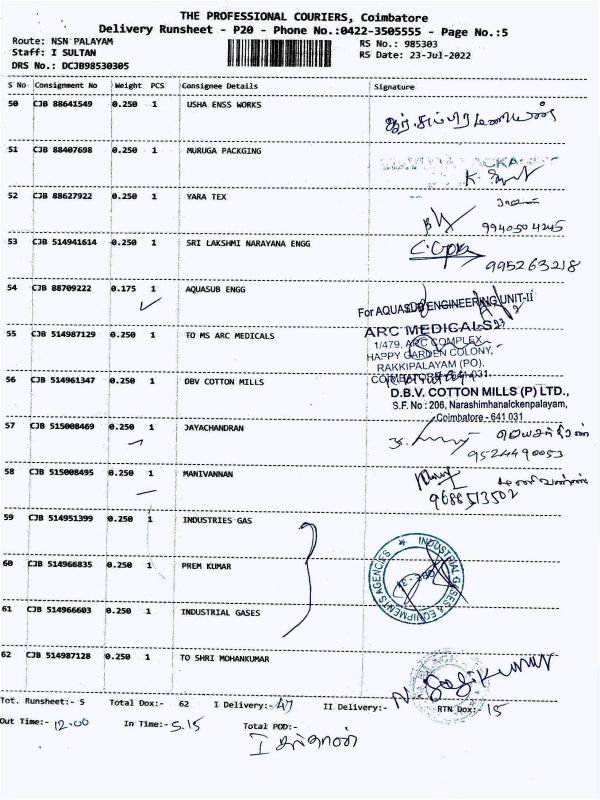 THE PROFESSIONAL COURIERS, Coimbatore
Delivery Runsheet - P20 - Phone No.:0422-3505555 - Page No.:5
Route: NSN PALAYAM RS No.: 985303
Staff: I SULTAN RS Date: 23-Jul-2022
DRS No.: DCJB98530305
S No Consignment No Weight PCS Consignee Details Signature
50 CJB 88641549 0.250 1 USHA ENSS WORKS
51 CJB 88407698 0.250 1 MURUGA PACKGING
52 CJB 88627922 0.250 1 YARA TEX
9940504245
53 CJB 514941614 0.250 1 SRI LAKSHMI NARAYANA ENGG
995263218
54 CJB 88709222 0.175 1 AQUASUB ENGG
For AQUASUB ENGINEERING UNIT-II
55 CJB 514987129 0.250 1 TO MS ARC MEDICALS
ARC MEDICALS
1/479, ARC COMPLEX,
HAPPY GARDEN COLONY,
RAKKIPALAYAM (PO),
COIMBATORE - 641 031.
56 CJB 514961347 0.250 1 DBV COTTON MILLS
D.B.V. COTTON MILLS (P) LTD.,
S.F. No : 206, Narashimhanaickenpalayam,
Coimbatore - 641 031
57 CJB 515008469 0.250 1 JAYACHANDRAN
9524490053
58 CJB 515008495 0.250 1 MANIVANNAN
9688513502
59 CJB 514951399 0.250 1 INDUSTRIES GAS
60 CJB 514966835 0.250 1 PREM KUMAR
INDUSTRIAL GASES & EQUIPMENTS AGENCIES
61 CJB 514966603 0.250 1 INDUSTRIAL GASES
62 CJB 514987128 0.250 1 TO SHRI MOHANKUMAR
Tot. Runsheet:- 5 Total Dox:- 62 I Delivery:- 47 II Delivery:- RTN Dox:- 15
Out Time:- 12.00 In Time:- 5.15 Total POD:-
I சுல்தான்